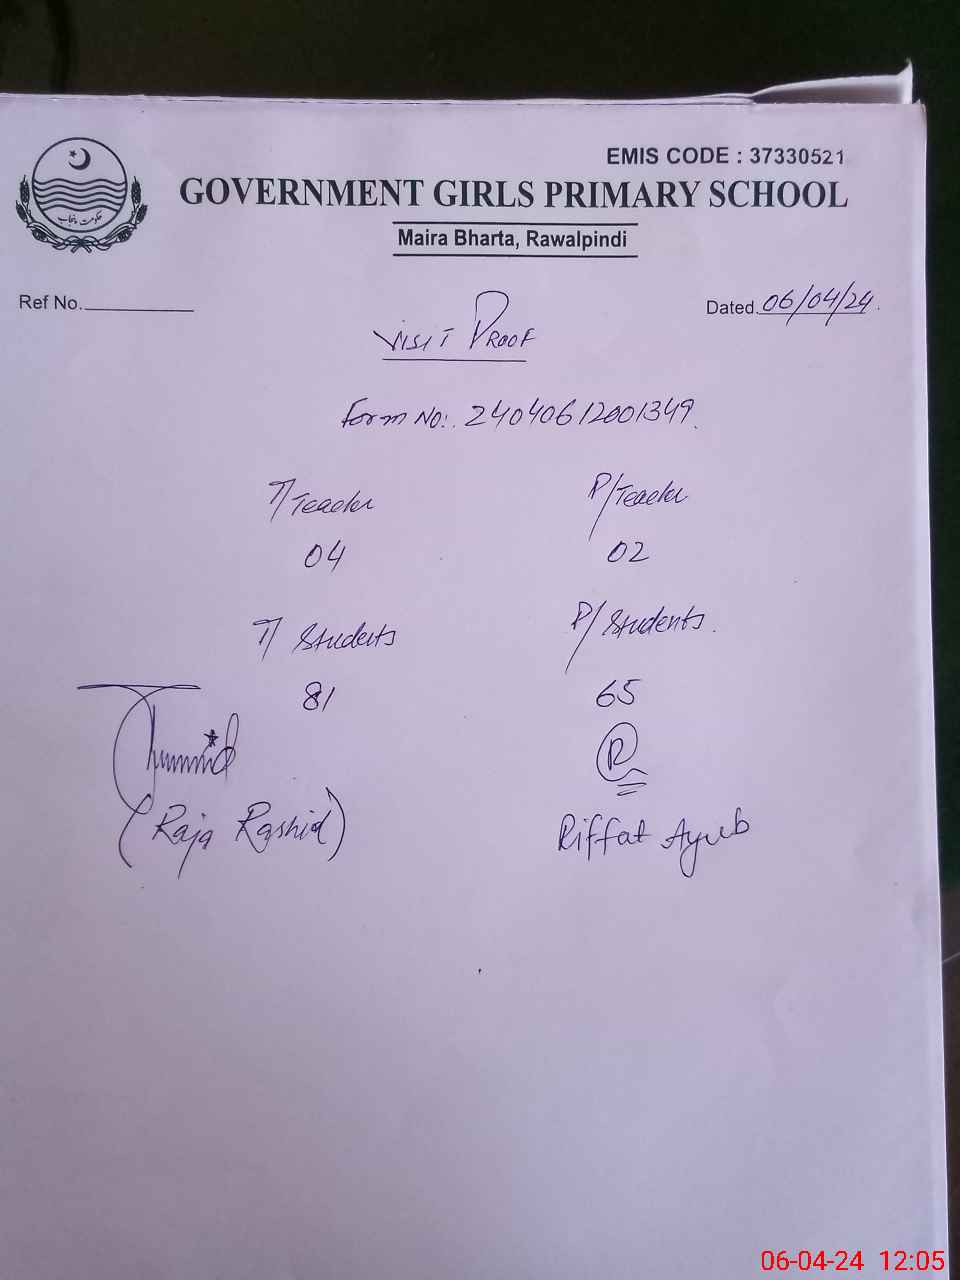 EMIS CODE : 37330521
GOVERNMENT GIRLS PRIMARY SCHOOL
حکومت پنجاب
Maira Bharta, Rawalpindi
Ref No.
Dated. 06/04/24
VISIT PROOF
Form NO:. 24040612001349.
T/Teacher P/Teacher
04 02
T/ Students P/ Students.
81 65
R
(Raja Rashid) Riffat Ayub
06-04-24 12:05